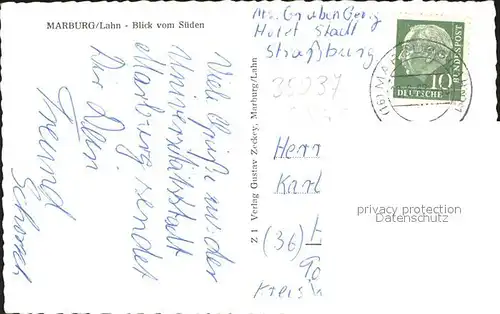 MARBURG/Lahn - Blick vom Süden
Viele Grüße aus der
Universitätsstadt
Marburg sendet
Dir Dein
Freund
Schorsch
Z 1 Verlag Gustav Zeckey, Marburg/Lahn
Gruben Georg
Hotel Stadt
Straßburg
35037
10
DEUTSCHE
BUNDESPOST
(16) MARBURG
Herrn
Karl
(36)
Kreis
privacy protection
Datenschutz